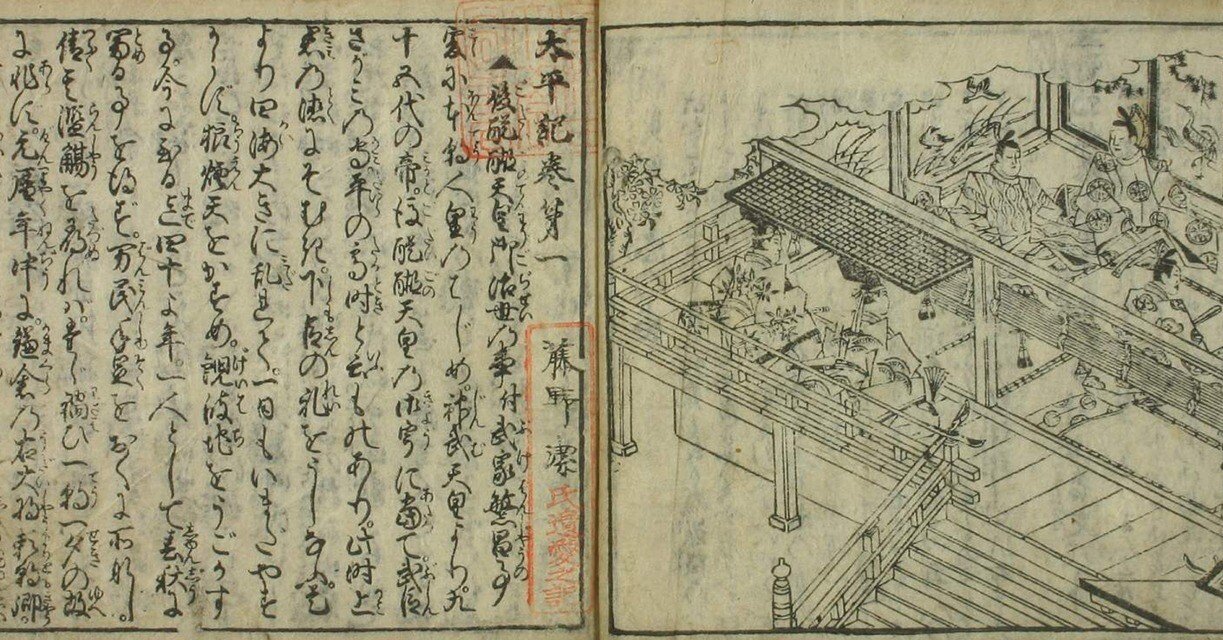 太平記巻第一
藤野
氏遺愛之記
▲後醍醐天皇御治世乃事付武家繁昌乃事
爰に本朝人皇乃はじめ。神武天皇より九
十五代の帝。後醍醐天皇乃御宇に當て武臣
さがミ乃守平の高時と云ものあり。此時上
君乃徳にそむき。下臣の礼をうしなふ。是
より四海大きに乱れて。一日もいまだやす
からず。狼煙天をかすめ。鯢波地をうごかす
事。今に至る迄四十よ年。一人として春秋に
冨る事を得ず。万民手足をおくに所なし。
倩其濫觴を尋れバ。禍ひ一朝一夕の故
に非ず。元暦年中に。鎌倉乃右大将頼朝卿。